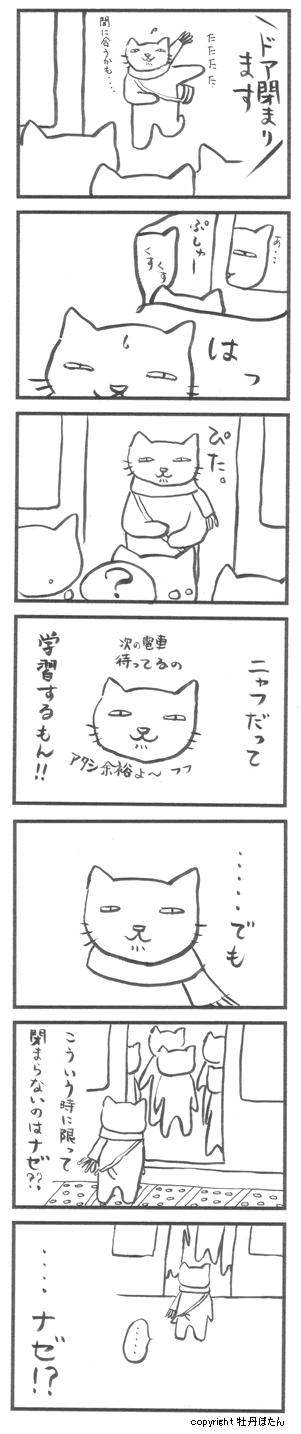 ドア閉まり
ます
たたたた
間に合うかも....
あ…
ぷしゅー
くす
くす
はっ
ぴた。
?
ニャフだって
次の電車
待ってるの
アタシ余裕よ～フフ
学習するもん!!
......でも
こういう時に限って
閉まらないのはナゼ??
....ナゼ!?
....
copyright 牡丹ぼたん